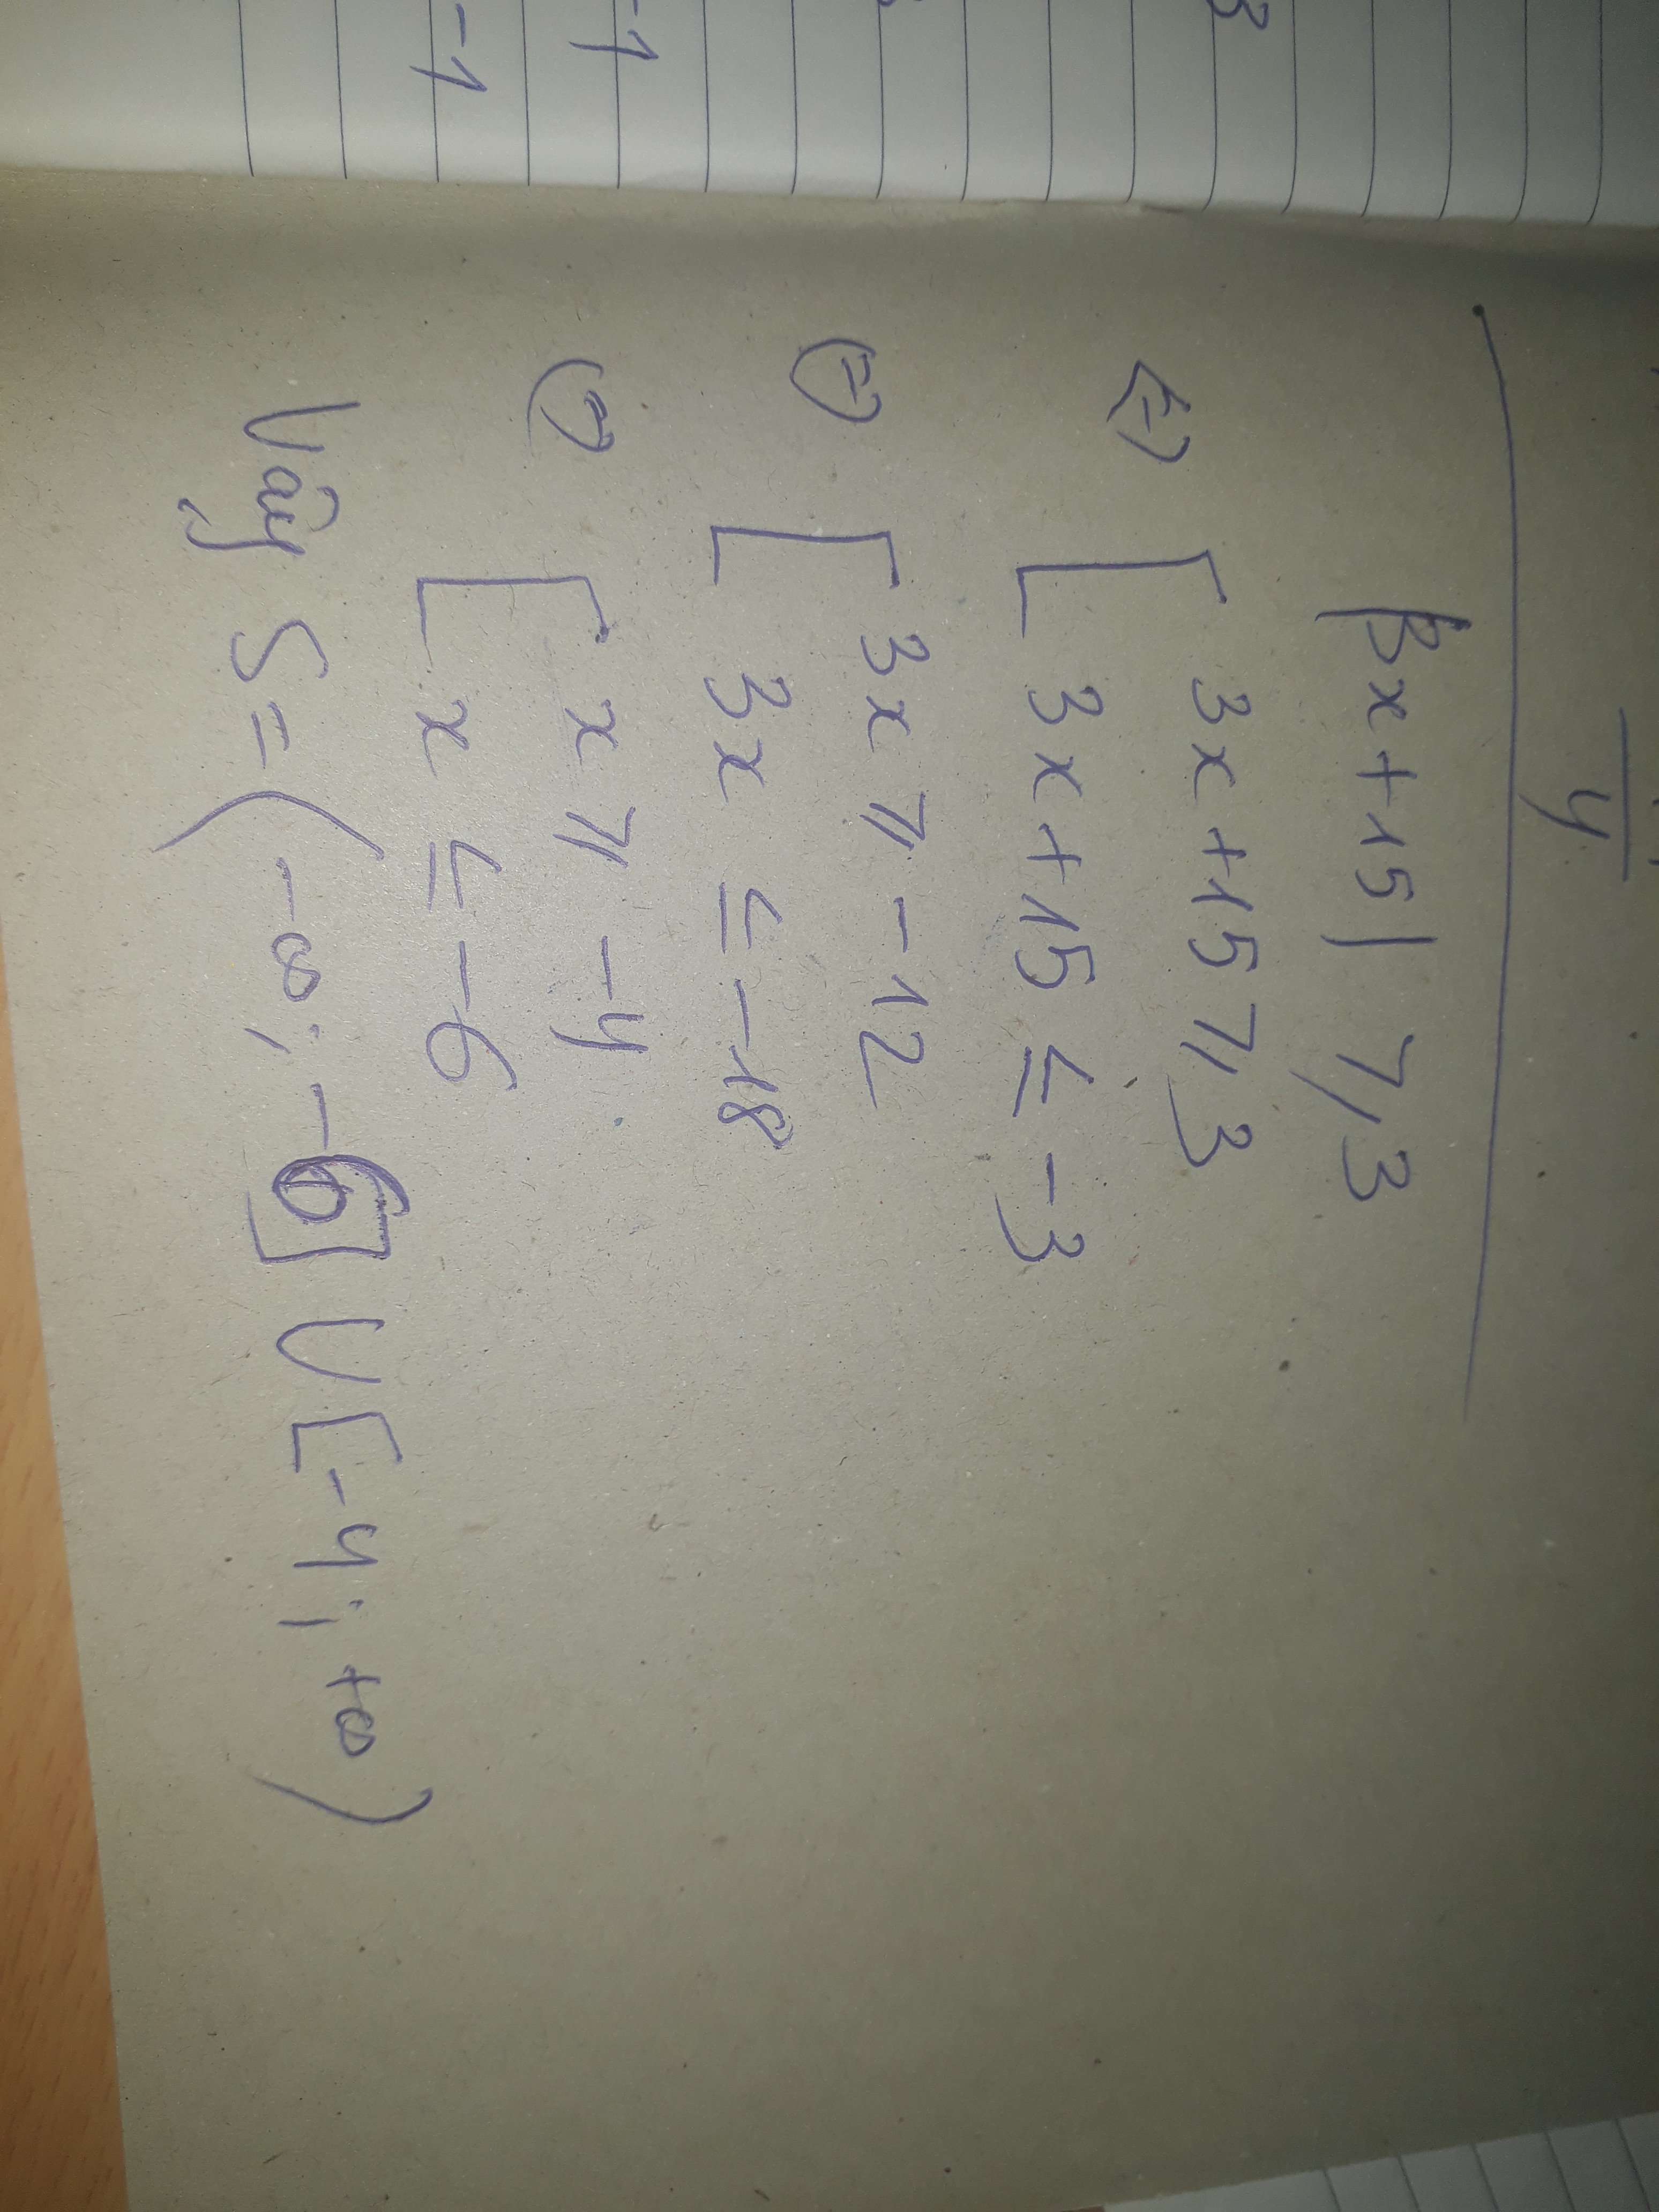 3
-1
-1
4
|3x+15| ≥ 3
<=> [ 3x+15 ≥ 3
[ 3x+15 ≤ -3
<=> [ 3x ≥ -12
[ 3x ≤ -18
<=> [ x ≥ -4
[ x ≤ -6
Vậy S = (-∞; -6] ∪ [-4; +∞)